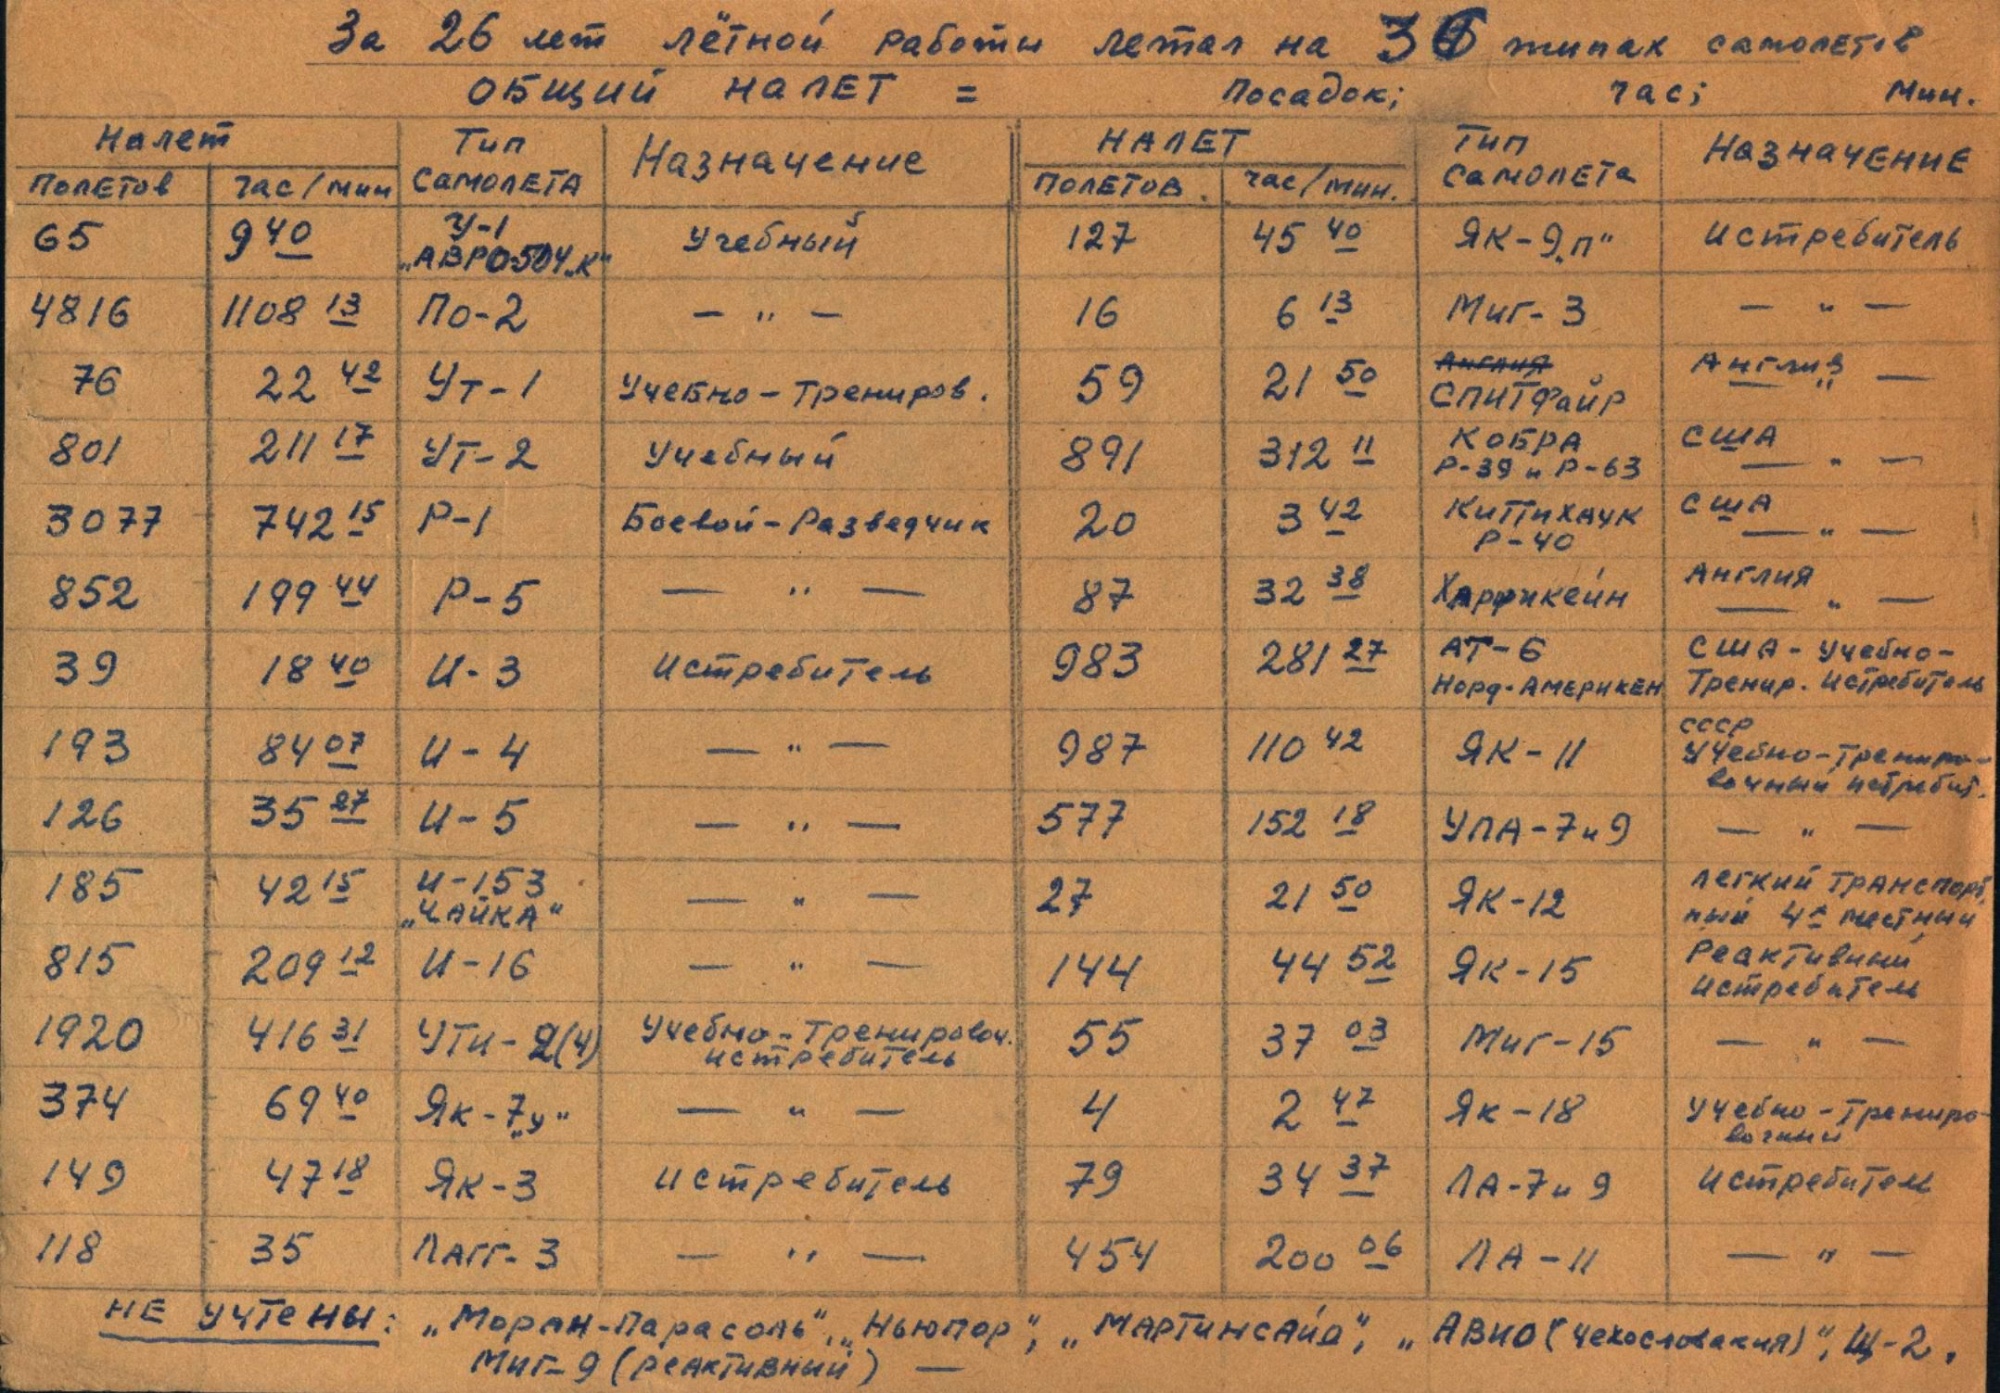 За 26 лет лётной работы летал на 36 типах самолетов
ОБЩИЙ НАЛЕТ = Посадок; час; Мин.
Налет Тип Назначение НАЛЕТ Тип НАЗНАЧЕНИЕ
ПОЛЕТОВ час/мин САМОЛЕТА ПОЛЕТОВ. час/мин. САМОЛЕТА
65 9 40 У-1 Учебный 127 45 40 ЯК-9„П" Истребитель
„АВРО-504„К"
4816 1108 13 По-2 — " — 16 6 13 МиГ-3 — " —
76 22 42 УТ-1 Учебно-Трениров. 59 21 50 Англия Англия — " —
СПИТФайР
801 211 17 УТ-2 Учебный 891 312 11 КОБРА США
Р-39 и Р-63 — " —
3077 742 15 Р-1 Боевой-Разведчик 20 3 42 КиТТиХАУК США
Р-40 — " —
852 199 44 Р-5 — " — 87 32 38 Харрикейн Англия
— " —
39 18 40 И-3 Истребитель 983 281 27 АТ-6 США-Учебно-
Норд-АМЕРИКЕН Тренир. Истребитель
193 84 07 И-4 — " — 987 110 42 ЯК-11 СССР
Учебно-Трениро-
вочный истребит.
126 35 27 И-5 — " — 577 152 18 УЛА-7и9 — " —
185 42 15 И-153 — " — 27 21 50 ЯК-12 легкий транспорт
„ЧАЙКА" ный 4х местный
815 209 12 И-16 — " — 144 44 52 ЯК-15 Реактивный
Истребитель
1920 416 31 УТИ-2(4) Учебно-Тренировоч. 55 37 03 МиГ-15 — " —
истребитель
374 69 40 Як-7„у" — " — 4 2 47 Як-18 Учебно-Трениро-
вочный
149 47 18 Як-3 Истребитель 79 34 37 ЛА-7и9 Истребитель
118 35 ЛАГГ-3 — " — 454 200 06 ЛА-11 — " —
НЕ УЧТЕНЫ: „Моран-Парасоль", „Ньюпор", „МАРТИНСАЙД", „АВИО (Чехословакия)", Щ-2,
МиГ-9 (реактивный) —